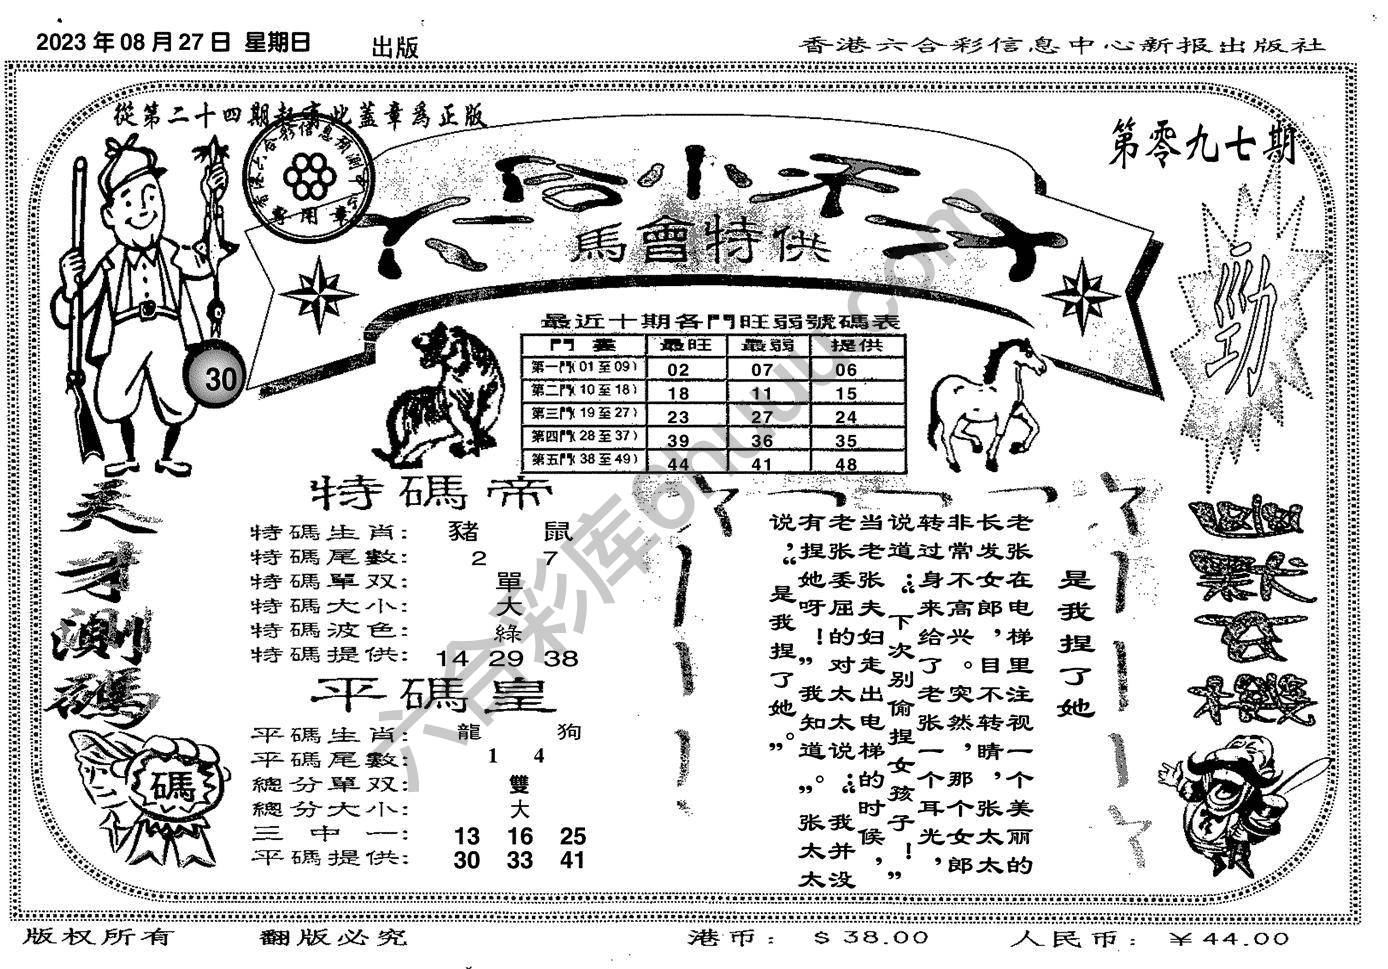 2023 年 08 月 27 日 星期日
出版
香港六合彩信息中心新报出版社
從第二十四期起寄此蓋章爲正版
香港六合彩信息預測中心
專用章
第零九七期
馬會特供
勁
30
最近十期各門旺弱號碼表
門 最旺 最弱 提供
第一門(01 至 09) 02 07 06
第二門(10 至 18) 18 11 15
第三門(19 至 27) 23 27 24
第四門(28 至 37) 39 36 35
第五門(38 至 49) 44 41 48
天才測碼
碼
特碼帝
特碼生肖: 豬 鼠
特碼尾數: 2 7
特碼單双: 單
特碼大小: 大
特碼波色: 綠
特碼提供: 14 29 38
平碼皇
平碼生肖: 龍 狗
平碼尾數: 1 4
總分單双: 雙
總分大小: 大
三中一: 13 16 25
平碼提供: 30 33 41
是我捏了她
老张在电梯里注视一个美丽的
长发女郎,目不转睛,张太太
非常不高兴。突然,那个女郎
转过身来给了老张一个耳光,
说道:“下次别偷捏女孩子!”
当老张夫妇走出电梯的时候,
老张委屈的对太太说:“我并没
有捏她呀!”“我知道。”张太太
说,“是我捏了她。”
六合彩库6huu.com
版权所有
翻版必究
港币: $ 38.00
人民币: ￥44.00